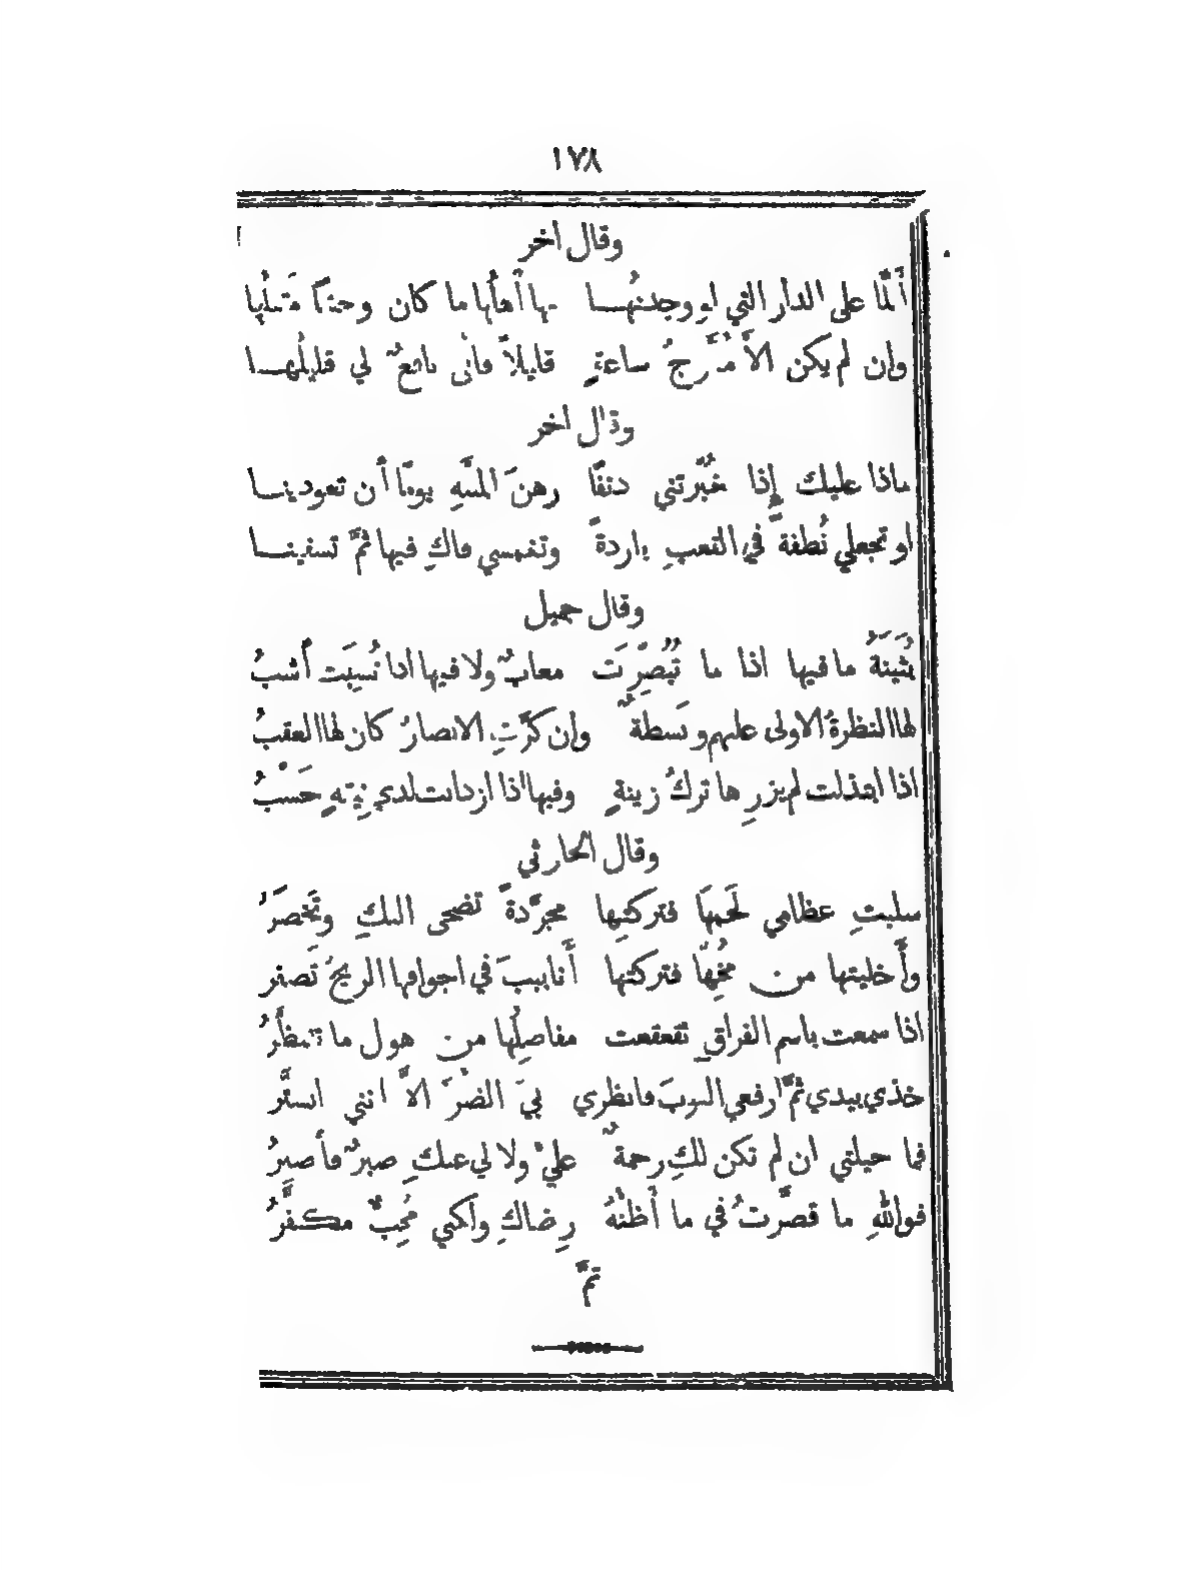 ١٧٨
وقال اخر
ألمّا على الدار التي لو وجدتُهـا بها أهلُها ما كان وحشًا مَقيلُها
وان لم يكن الاَّ مُعَرَّجُ ساعةٍ قليلاً فاني نافعٌ لي قليلُهـا
وقال اخر
ماذا عليك إِذا خُبّرتني دنفًا رهنَ المنيَّهِ يومًا أَن تعودينـا
او تجعلي نُطفةً في القعبِ باردةً وتغمسي فاكِ فيها ثمَّ تسقينـا
وقال جميل
بُثَينَةُ ما فيها اذا ما تُبُصِّرَت معابٌ ولا فيها اذا نُسِبَت أَشبُ
لها النظرةُ الاولى عليهم وبَسطةٌ وان كرَّتِ الابصارُ كان لها العقبُ
اذا ابتذلت لم يزرِ ها تركُ زينةٍ وفيها اذا ازدانت لدي نِيَّةٍ حَسْبُ
وقال الحارثي
سلبتِ عظامي لَحمَهَا فتركتِها مجرَّدةً تضحى اليكِ وتَخصَرُ
وأَخليتها من مُخِّهَا فتركتها أَنابيبَ في اجوافها الريحُ تَصفر
اذا سمعت باسم الفراقِ تقعقعت مفاصلُها من هول ما تتنظَّرُ
خذي بيدي ثمَّ ارفعي الثوبَ فانظري بيَ الضرَّ الاَّ انني اتستَّر
فما حيلتي ان لم تكن لكِ رحمةٌ عليَّ ولا لي عنكِ صبرٌ فأَصبرُ
فواللهِ ما قصَّرتُ في ما أَظنُّهُ رِضاكِ ولكني مُحِبٌّ مكفَّرُ
تمَّ